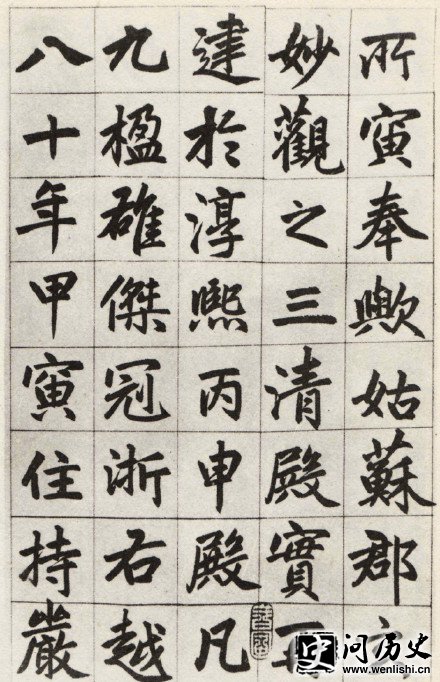 所寅奉歟姑蘇郡
妙觀之三清殿實
建於淳熙丙申殿凡
九楹雄傑冠浙右越
八十年甲寅住持嚴
问历史
www.wenlishi.cn